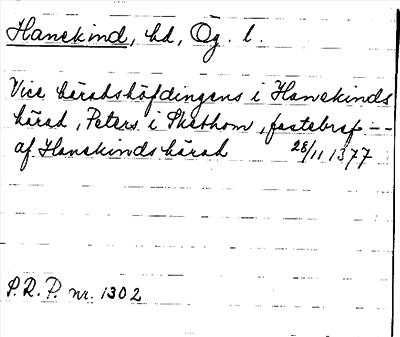 Hanekind, hd, Ög. l.
Vice häradshöfdingens i Hanekinds
härad, Peters i Skethom, fastebref --
af Hanekinds härad 28/11 1377
P.R.P. nr. 1302